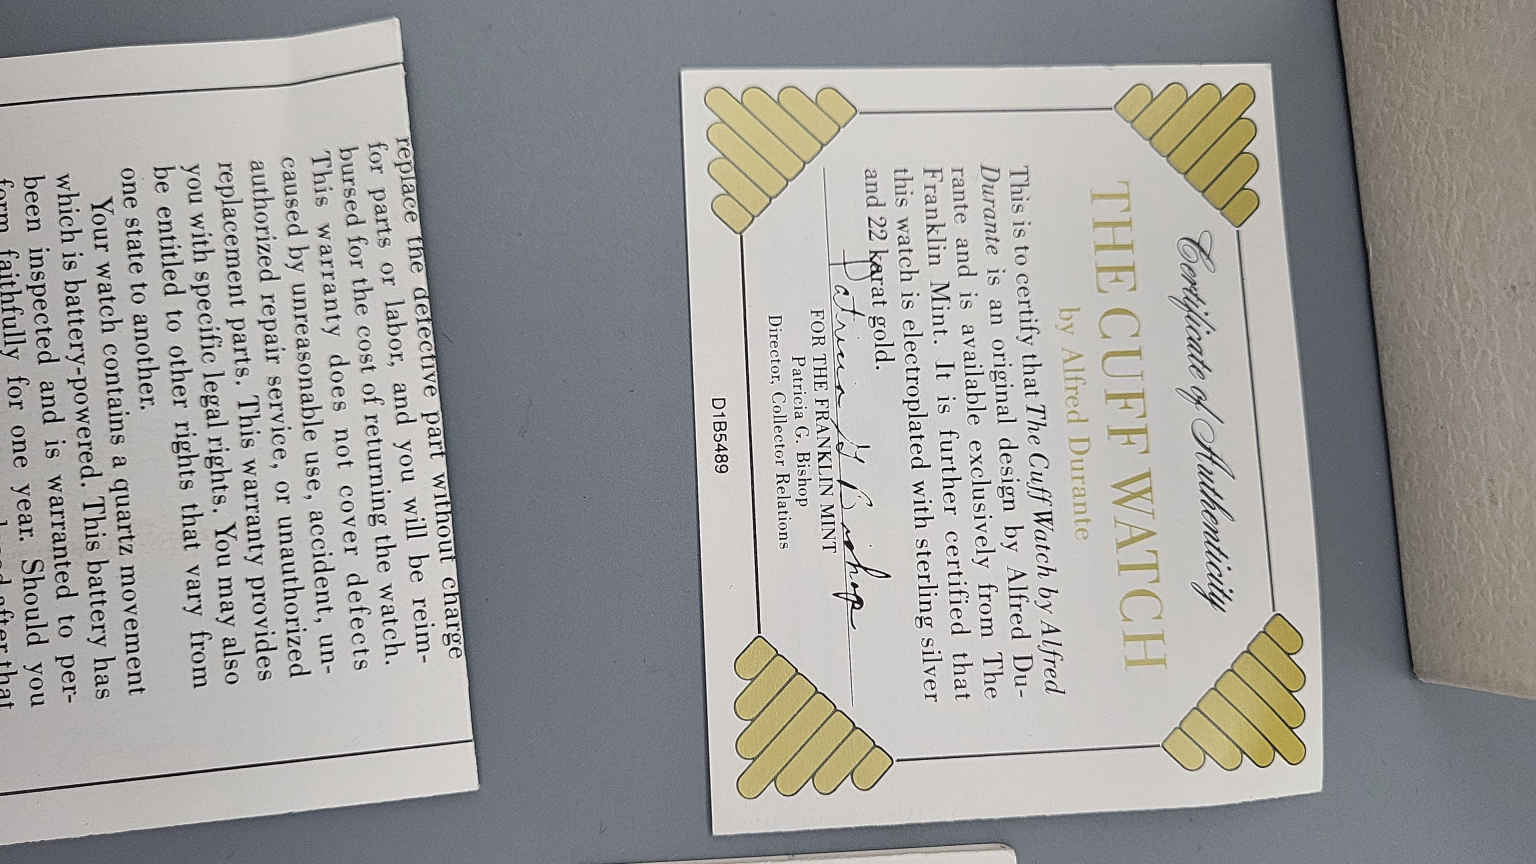 Certificate of Authenticity
THE CUFF WATCH
by Alfred Durante
This is to certify that The Cuff Watch by Alfred
Durante is an original design by Alfred Du-
rante and is available exclusively from The
Franklin Mint. It is further certified that
this watch is electroplated with sterling silver
and 22 karat gold.
Patricia G. Bishop
FOR THE FRANKLIN MINT
Patricia G. Bishop
Director, Collector Relations
D1B5489
replace the defective part without charge
for parts or labor, and you will be reim-
bursed for the cost of returning the watch.
This warranty does not cover defects
caused by unreasonable use, accident, un-
authorized repair service, or unauthorized
replacement parts. This warranty provides
you with specific legal rights. You may also
be entitled to other rights that vary from
one state to another.
Your watch contains a quartz movement
which is battery-powered. This battery has
been inspected and is warranted to per-
form faithfully for one year. Should you